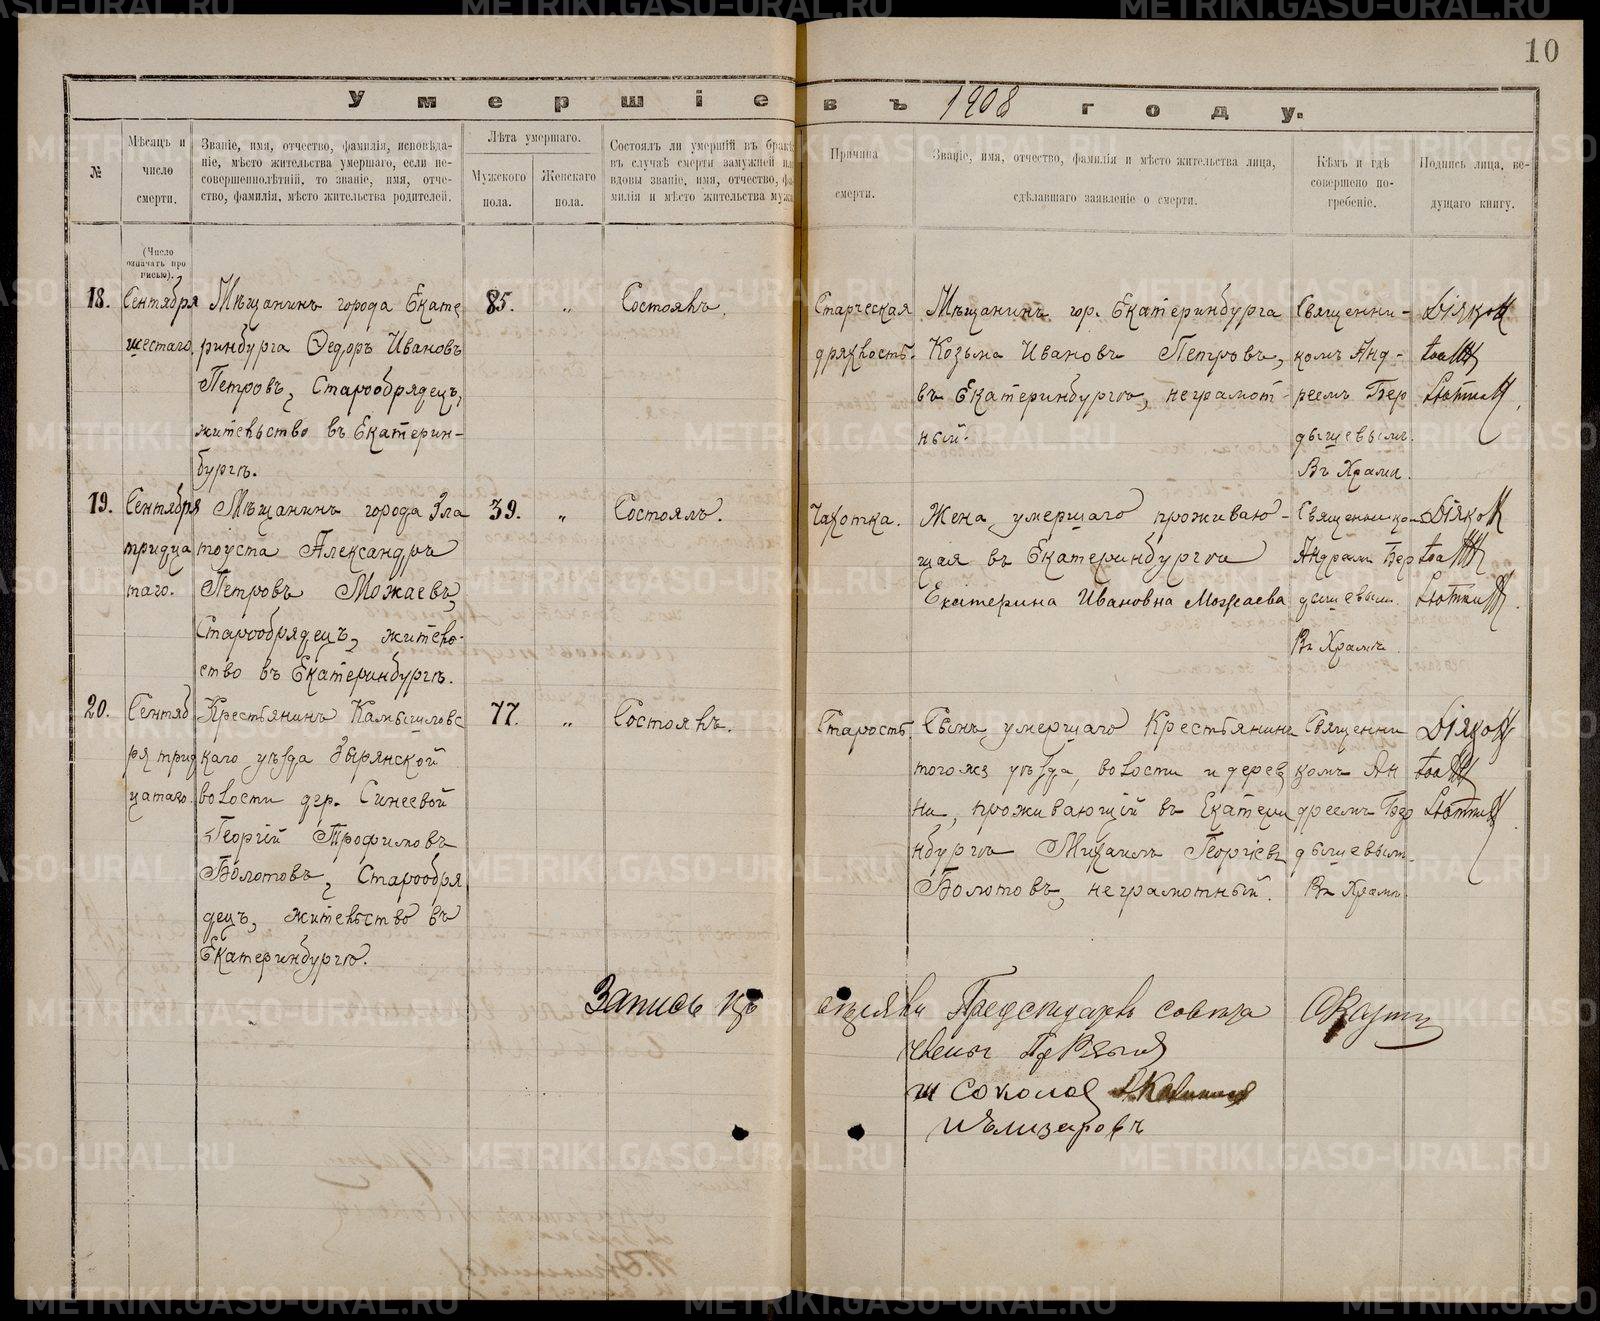 METRIKI.GASO-URAL.RU
10
Умершіе въ 1908 году.
№
Мѣсяцъ и
число
смерти.
Званіе, имя, отчество, фамилія, исповѣда-
ніе, мѣсто жительства умершаго, если не-
совершеннолѣтній, то званіе, имя, отче-
ство, фамилія, мѣсто жительства родителей.
Лѣта умершаго.
Мужского
пола.
Женскаго
пола.
Состоялъ ли умершій въ бракѣ
въ случаѣ смерти замужней
вдовы званіе, имя, отчество,
милія и мѣсто жительства мужа
Причина
смерти.
Званіе, имя, отчество, фамилія и мѣсто жительства лица,
сдѣлавшаго заявленіе о смерти.
Кѣмъ и гдѣ
совершено по-
гребеніе.
Подпись лица, ве-
дущаго книгу.
(Число
означать про
писью).
18.
Сентября
шестаго.
Мѣщанинъ города Екате
ринбурга Ѳедоръ Ивановъ
Петровъ, Старообрядецъ,
жительство въ Екатерин-
бургѣ.
85.
„
Состоялъ.
Старческая
дряхлость.
Мѣщанинъ гор. Екатеринбурга
Козьма Ивановъ Петровъ,
въ Екатеринбургѣ, неграмот-
ный.
Священни-
комъ Анд-
реемъ Бер
дышевымъ.
Въ Храмѣ.
19.
Сентября
тридца
таго.
Мѣщанинъ города Зла
тоуста Александръ
Петровъ Можаевъ,
Старообрядецъ, житель-
ство въ Екатеринбургѣ.
39.
„
Состоялъ.
Чахотка.
Жена умершаго проживаю-
щая въ Екатеринбургѣ
Екатерина Ивановна Можаева
Священником
Андреемъ Бер
дышевым.
Въ Храмѣ.
20.
Сентяб
ря трид
цатаго.
Крестьянинъ Камышловс
каго уѣзда Зырянской
волости дер. Синеевой
Георгій Трофимовъ
Болотовъ, Старообря
децъ, жительство въ
Екатеринбургѣ.
77.
„
Состоялъ.
Старость
Сынъ умершаго Крестьянинъ
тогожъ уѣзда, волости и дерев
ни, проживающій въ Екатери
нбургѣ Михаилъ Георгіевъ
Болотовъ, неграмотный.
Священни
комъ Ан
дреемъ Бер
дышевым.
Въ Храмѣ.
Запись
Председатель совѣта
члены
Соколов